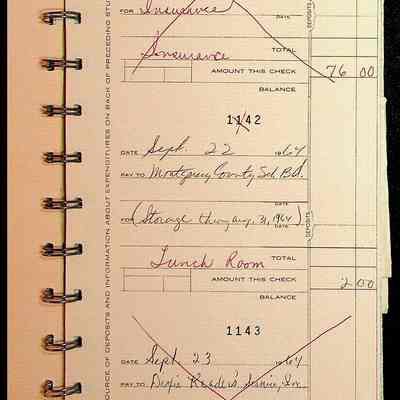 FOR Insurance
DATE
Insurance TOTAL
AMOUNT THIS CHECK 76 00
BALANCE
1142
DATE Sept. 22 1964
PAY TO Montgomery County Sch. Bd.
DATE
FOR (Storage thru Aug. 31, 1964)
DATE
DEPOSITS
Lunch Room TOTAL
AMOUNT THIS CHECK 2 00
BALANCE
1143
DATE Sept. 23 1964
PAY TO Readers Service, Inc.
DEPOSITS
OURCE OF DEPOSITS AND INFORMATION ABOUT EXPENDITURES ON BACK OF PRECEDING STU